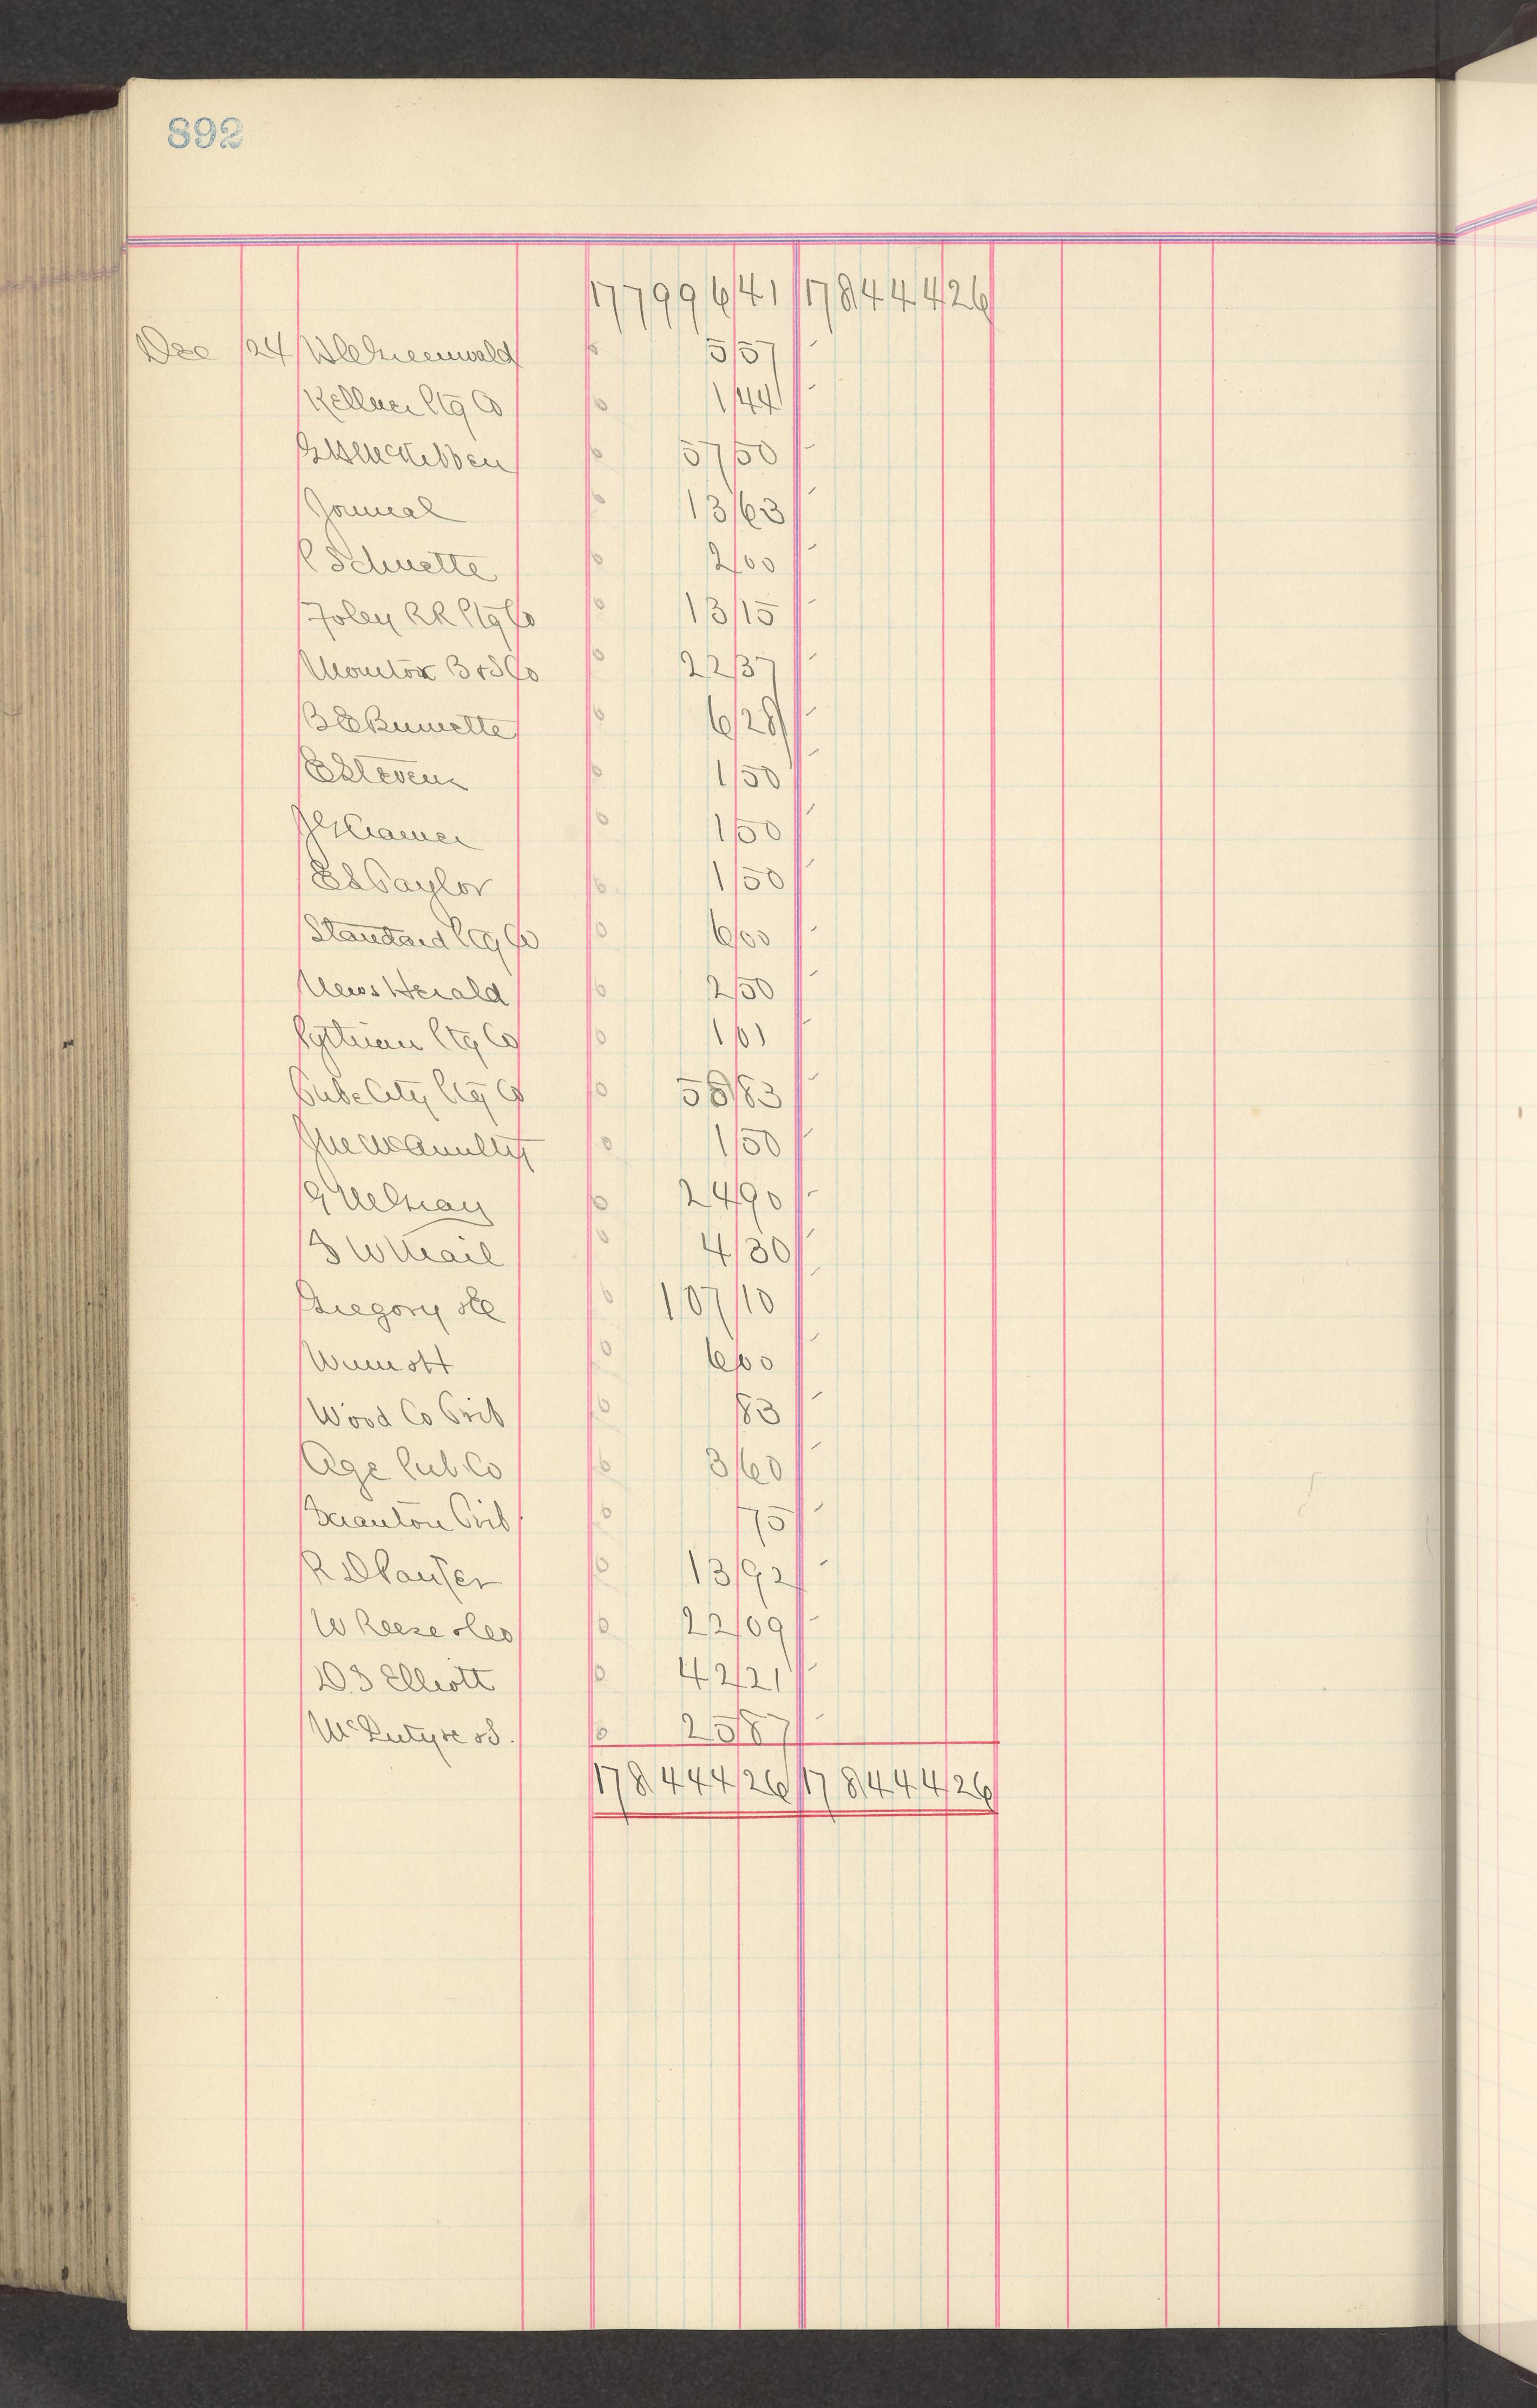 892
177996 41 178444 26
Dec 24 Greenwald 5 57
Kellner Ptg Co 1 44
McKibben 57 50
Journal 13 63
P Schuette 2 00
Foley RR Ptg Co 13 15
Moulton B & S Co 22 37
B E Burnette 6 28
E Stevens 1 50
Kramer 1 50
E L Taylor 1 50
Standard Ptg Co 6 00
News Herald 2 50
Pythian Ptg Co 1 01
Tube City Ptg Co 58 83
1 50
24 90
4 30
Gregory & Co 107 10
6 00
Wood Co Trib 83
Age Pub Co 3 60
Scranton Trib 75
R D 13 92
W Reese & Co 22 09
D B Elliott 42 21
McIntyre & S. 25 87
178444 26 178444 26